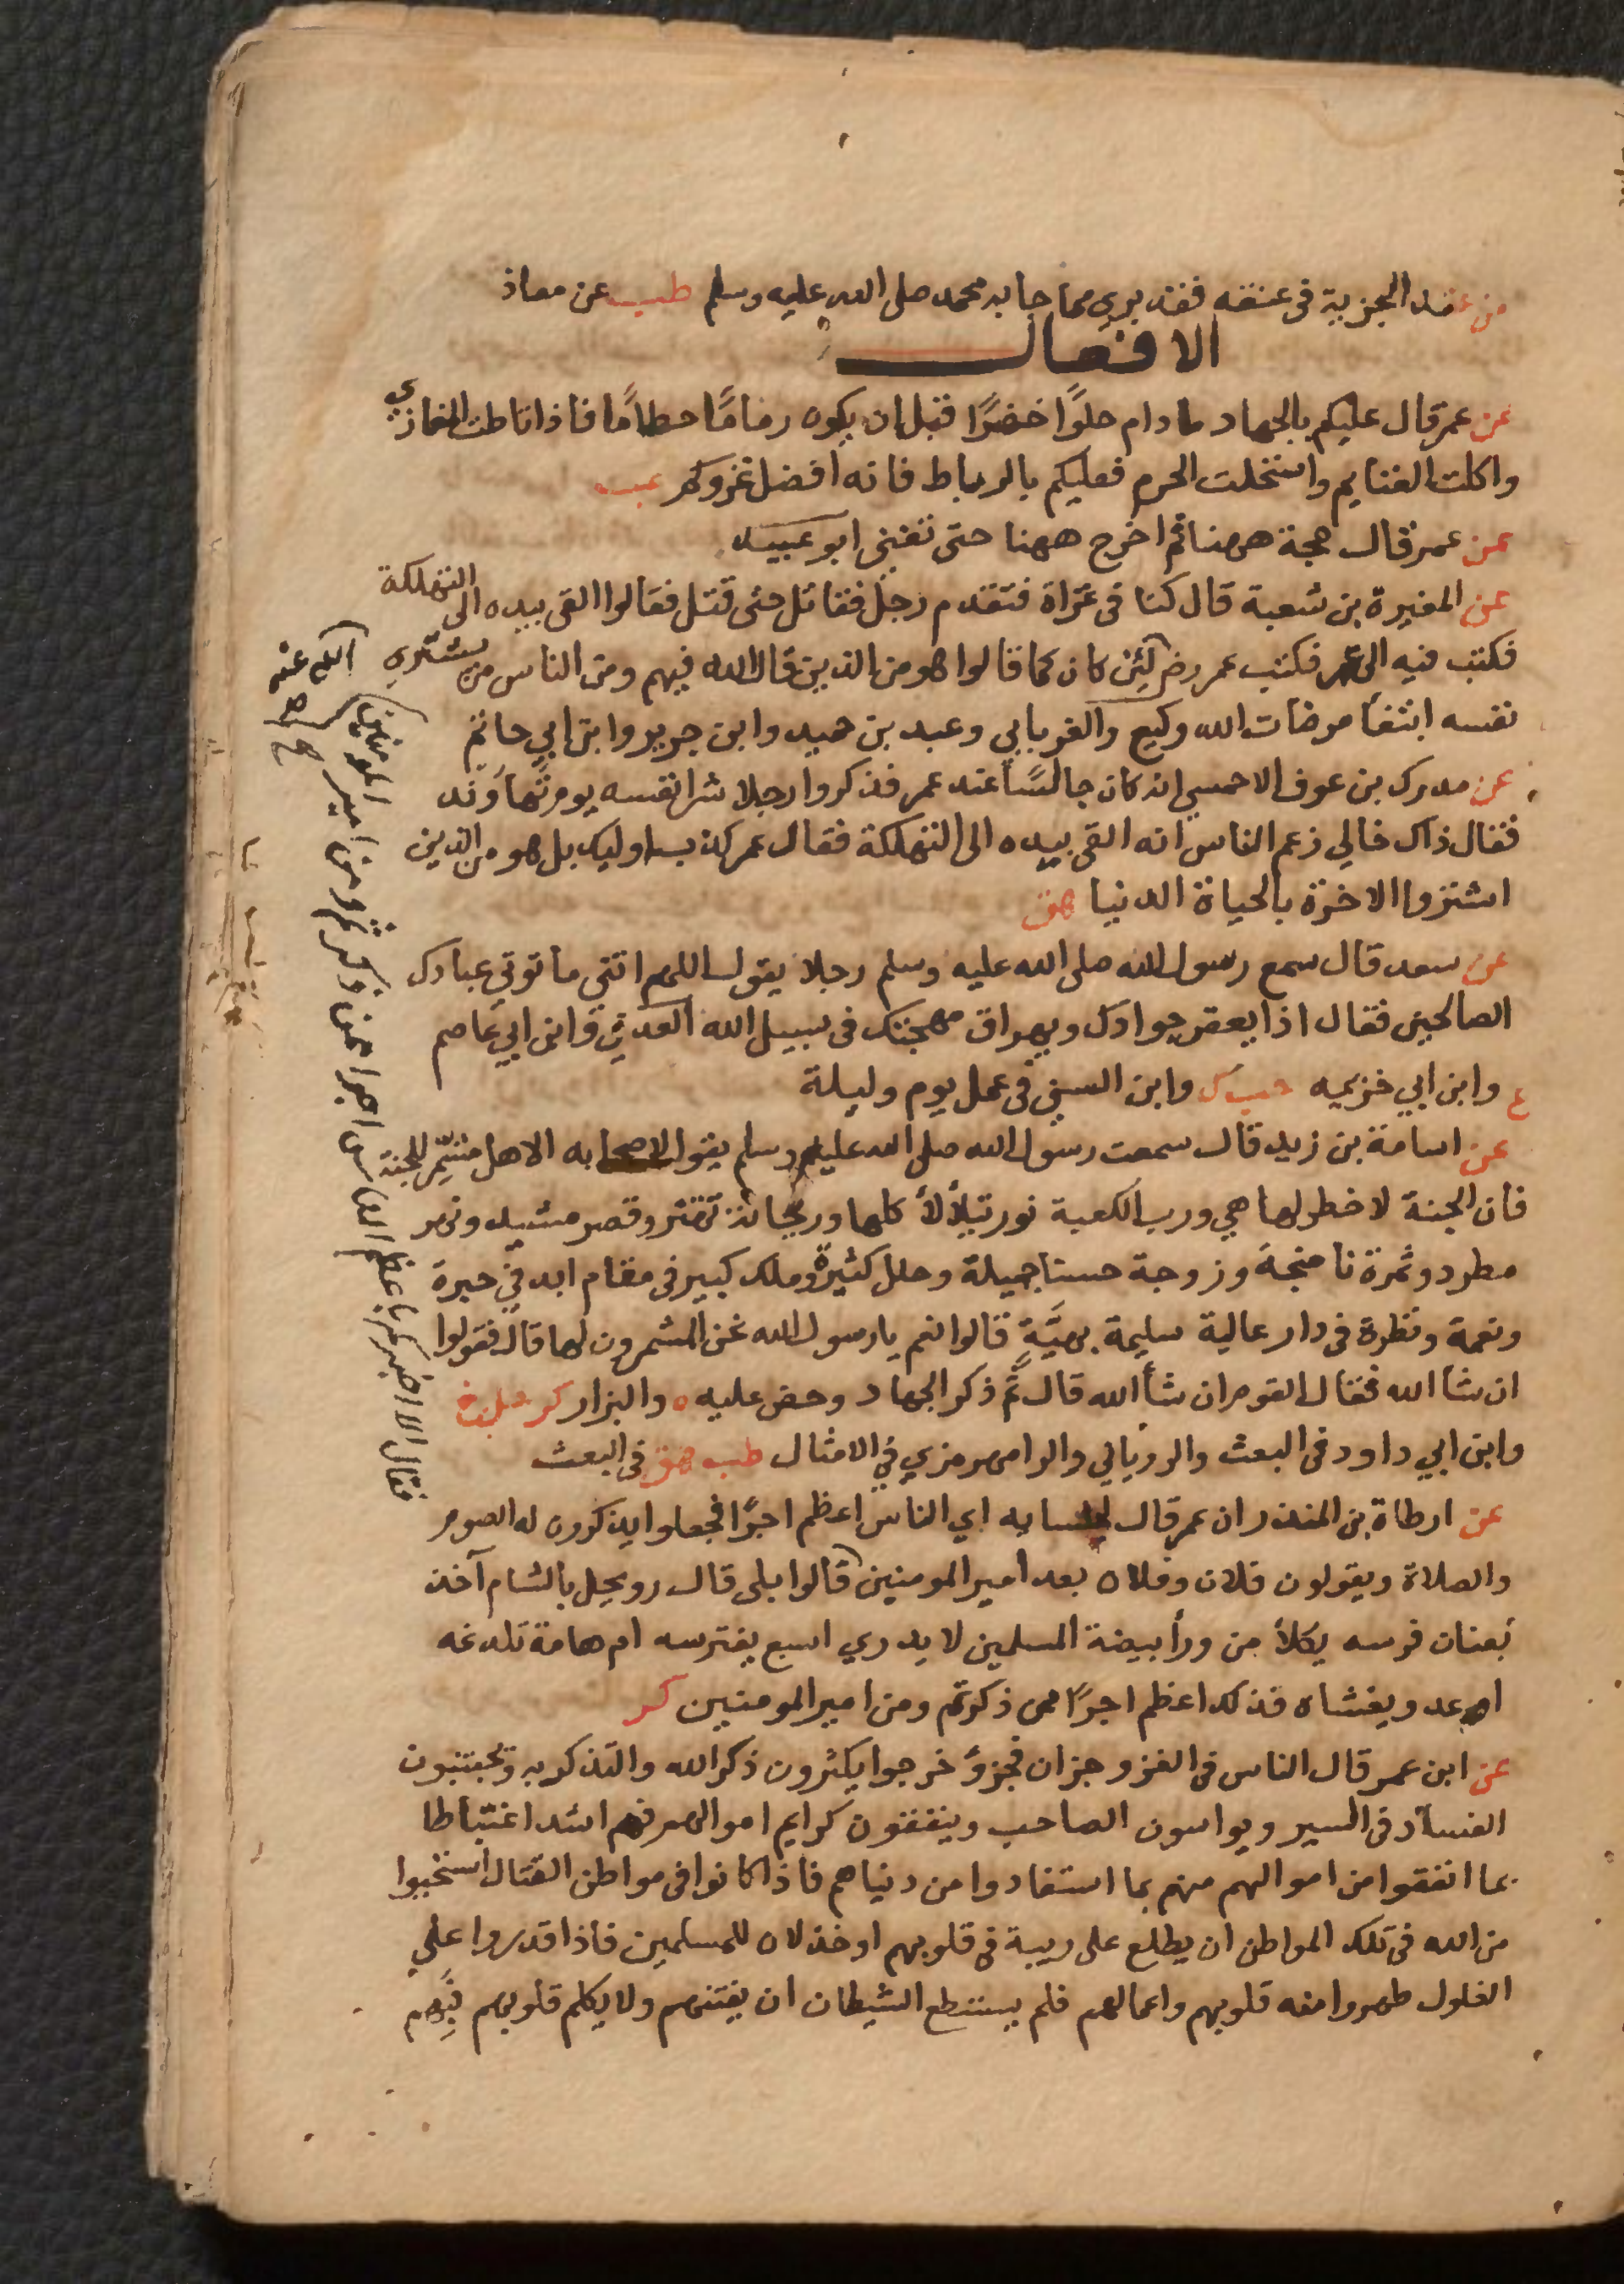 من عقد الجزية فى عنقه فقد برى مما جا به محمد صلى الله عليه وسلم طب عن معاذ
الافعال
عن عمر قال عليكم بالجهاد ما دام حلوًا خضرًا قبل ان يكون رمامًا حطامًا فاذا انتاطت المغازي
واكلت الغنايم واستحلت الحرم فعليكم بالرباط فانه افضل غزوكم عب
عن عمر قال حجة ههنا ثم اخرج ههنا حتى تفنى ابو عبيد
عن المغيرة بن شعبة قال كنا فى غزاة فتقدم رجل فقاتل حتى قتل فقالوا القى بيده الى التهلكة
فكتب فيه الى عمر فكتب عمر رضى لئن كان كما قالوا هو من الذين قال الله فيهم ومن الناس من يشتري
نفسه ابتغا مرضات الله وكيع والفريابي وعبد بن حميد وابن جرير وابن ابي حاتم
عن مدرك بن عوف الاحمسي انه كان جالسًا عند عمر فذكروا رجلا شرا نفسه يوم نهاوند
فقال ذاك خالي زعم الناس انه القى بيده الى التهلكة فقال عمر كذب اوليك بل هو من الذين
اشتروا الاخرة بالحياة الدنيا هق
عن سعد قال سمع رسول الله صلى الله عليه وسلم رجلا يقول اللهم اتني ما توتي عبادك
الصالحين فقال اذا يعقر جوادك ويهراق مهجتك فى سبيل الله العدني وابن ابي عاصم
ع وابن ابي خزيمه حب ك وابن السني فى عمل يوم وليلة
عن اسامة بن زيد قال سمعت رسول الله صلى الله عليه وسلم يقول لاصحابه الا هل مشمر للجنة
فان الجنة لا خطر لها هي ورب الكعبة نور تتلألأ كلها وريحانة تهتز وقصر مشيد ونهر
مطرد وثمرة ناضجة وزوجة حسنا جميلة وحلل كثيرة وملك كبير فى مقام ابد فى حبرة
ونعمة ونظرة فى دار عالية سليمة بهيَّةٍ قالوا نعم يا رسول الله نحن المشمرون لها قال فقولوا
ان شا الله فقال القوم ان شأ الله قال ثم ذكر الجهاد وحض عليه ه والبزار كر
وابن ابي داود فى البعث والروياني والرامهرمزي في الامثال طب هق فى البعث
عن ارطاة بن المنذر ان عمر قال لجلسايه اي الناس اعظم اجرًا فجعلوا يذكرون له الصوم
والصلاة ويقولون فلان وفلان بعد امير المومنين قالوا بلى قال رويجل بالشام آخذ
بعنان فرسه يكلأ من ورأ بيضة المسلمين لا يدري اسبع يفترسه ام هامة تلدغه
او عدو يغشاه فذلك اعظم اجرًا ممن ذكرتم ومن امير المومنين كر
عن ابن عمر قال الناس فى الغزو جزان فجزؤ خرجوا يكثرون ذكر الله والتذكر به ويجتنبون
الفساد فى السير ويواسون الصاحب وينفقون كرايم اموالهم فهم اشد اغتباطا
بما انفقوا من اموالهم منهم بما استفادوا من دنياهم فاذا كانوا فى مواطن القتال استحيوا
من الله فى تلك المواطن ان يطلع على ريبة فى قلوبهم او خذلان للمسلمين فاذا قدروا على
الغلول طهروا منه قلوبهم واعمالهم فلم يستطع الشيطان ان يفتنهم ولا يكلم قلوبهم فبهم
فقال الا اخبركم باعظم الناس اجرا ممن ذكرتم ومن امير المومنين